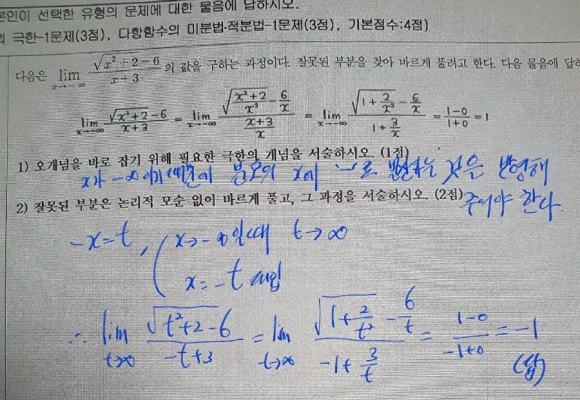 본인이 선택한 유형의 문제에 대한 물음에 답하시오.
의 극한-1문제(3점), 다항함수의 미분법·적분법-1문제(3점), 기본점수:4점)
다음은 lim_{x→-∞} (√(x²+2)-6)/(x+3) 의 값을 구하는 과정이다. 잘못된 부분을 찾아 바르게 풀려고 한다. 다음 물음에 답하
lim_{x→-∞} (√(x²+2)-6)/(x+3) = lim_{x→-∞} (√((x²+2)/x²)-6/x)/((x+3)/x) = lim_{x→-∞} (√(1+2/x²)-6/x)/(1+3/x) = (1-0)/(1+0) = 1
1) 오개념을 바로 잡기 위해 필요한 극한의 개념을 서술하시오. (1점)
x가 -∞이기 때문에 분모의 x에 -로 발산하는 것은 반영해
주어야 한다.
2) 잘못된 부분은 논리적 모순 없이 바르게 풀고, 그 과정을 서술하시오. (2점)
-x=t, ( x→-∞일때 t→∞
x=-t 대입
∴ lim_{t→∞} (√(t²+2)-6)/(-t+3) = lim_{t→∞} (√(1+2/t²)-6/t)/(-1+3/t) = (1-0)/(-1+0) = -1
(답)